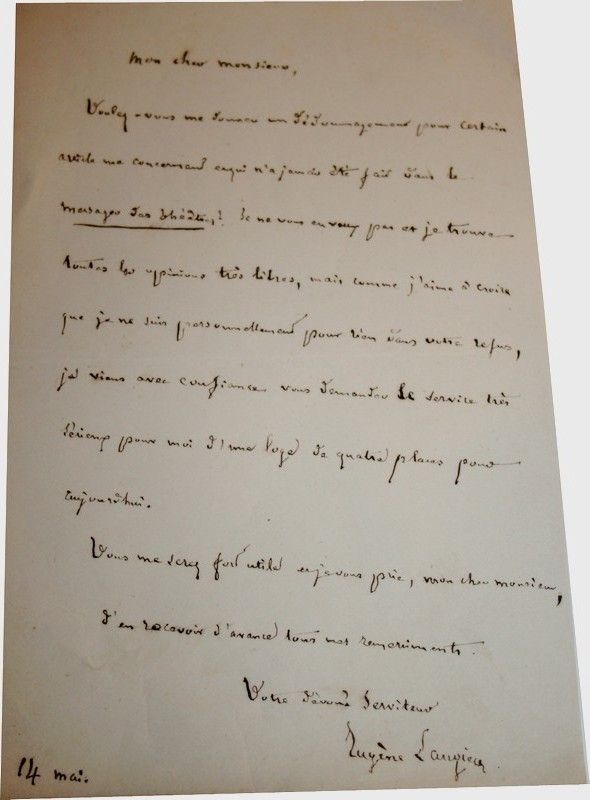 Mon cher monsieur,
Voulez-vous me donner un dédommagement pour certain
article me concernant et qui n'a jamais été fait dans le
Messager des théâtres? Je ne vous en veux pas et je trouve
toutes les opinions très libres, mais comme j'aime à croire
que je ne suis personnellement pour rien dans votre refus,
je viens avec confiance vous demander le service très
sérieux pour moi d'une loge de quatre places pour
aujourd'hui.
Vous me serez fort utile et je vous prie, mon cher monsieur,
d'en recevoir d'avance tous nos remerciments.
Votre dévoué serviteur
Eugène
14 mai.